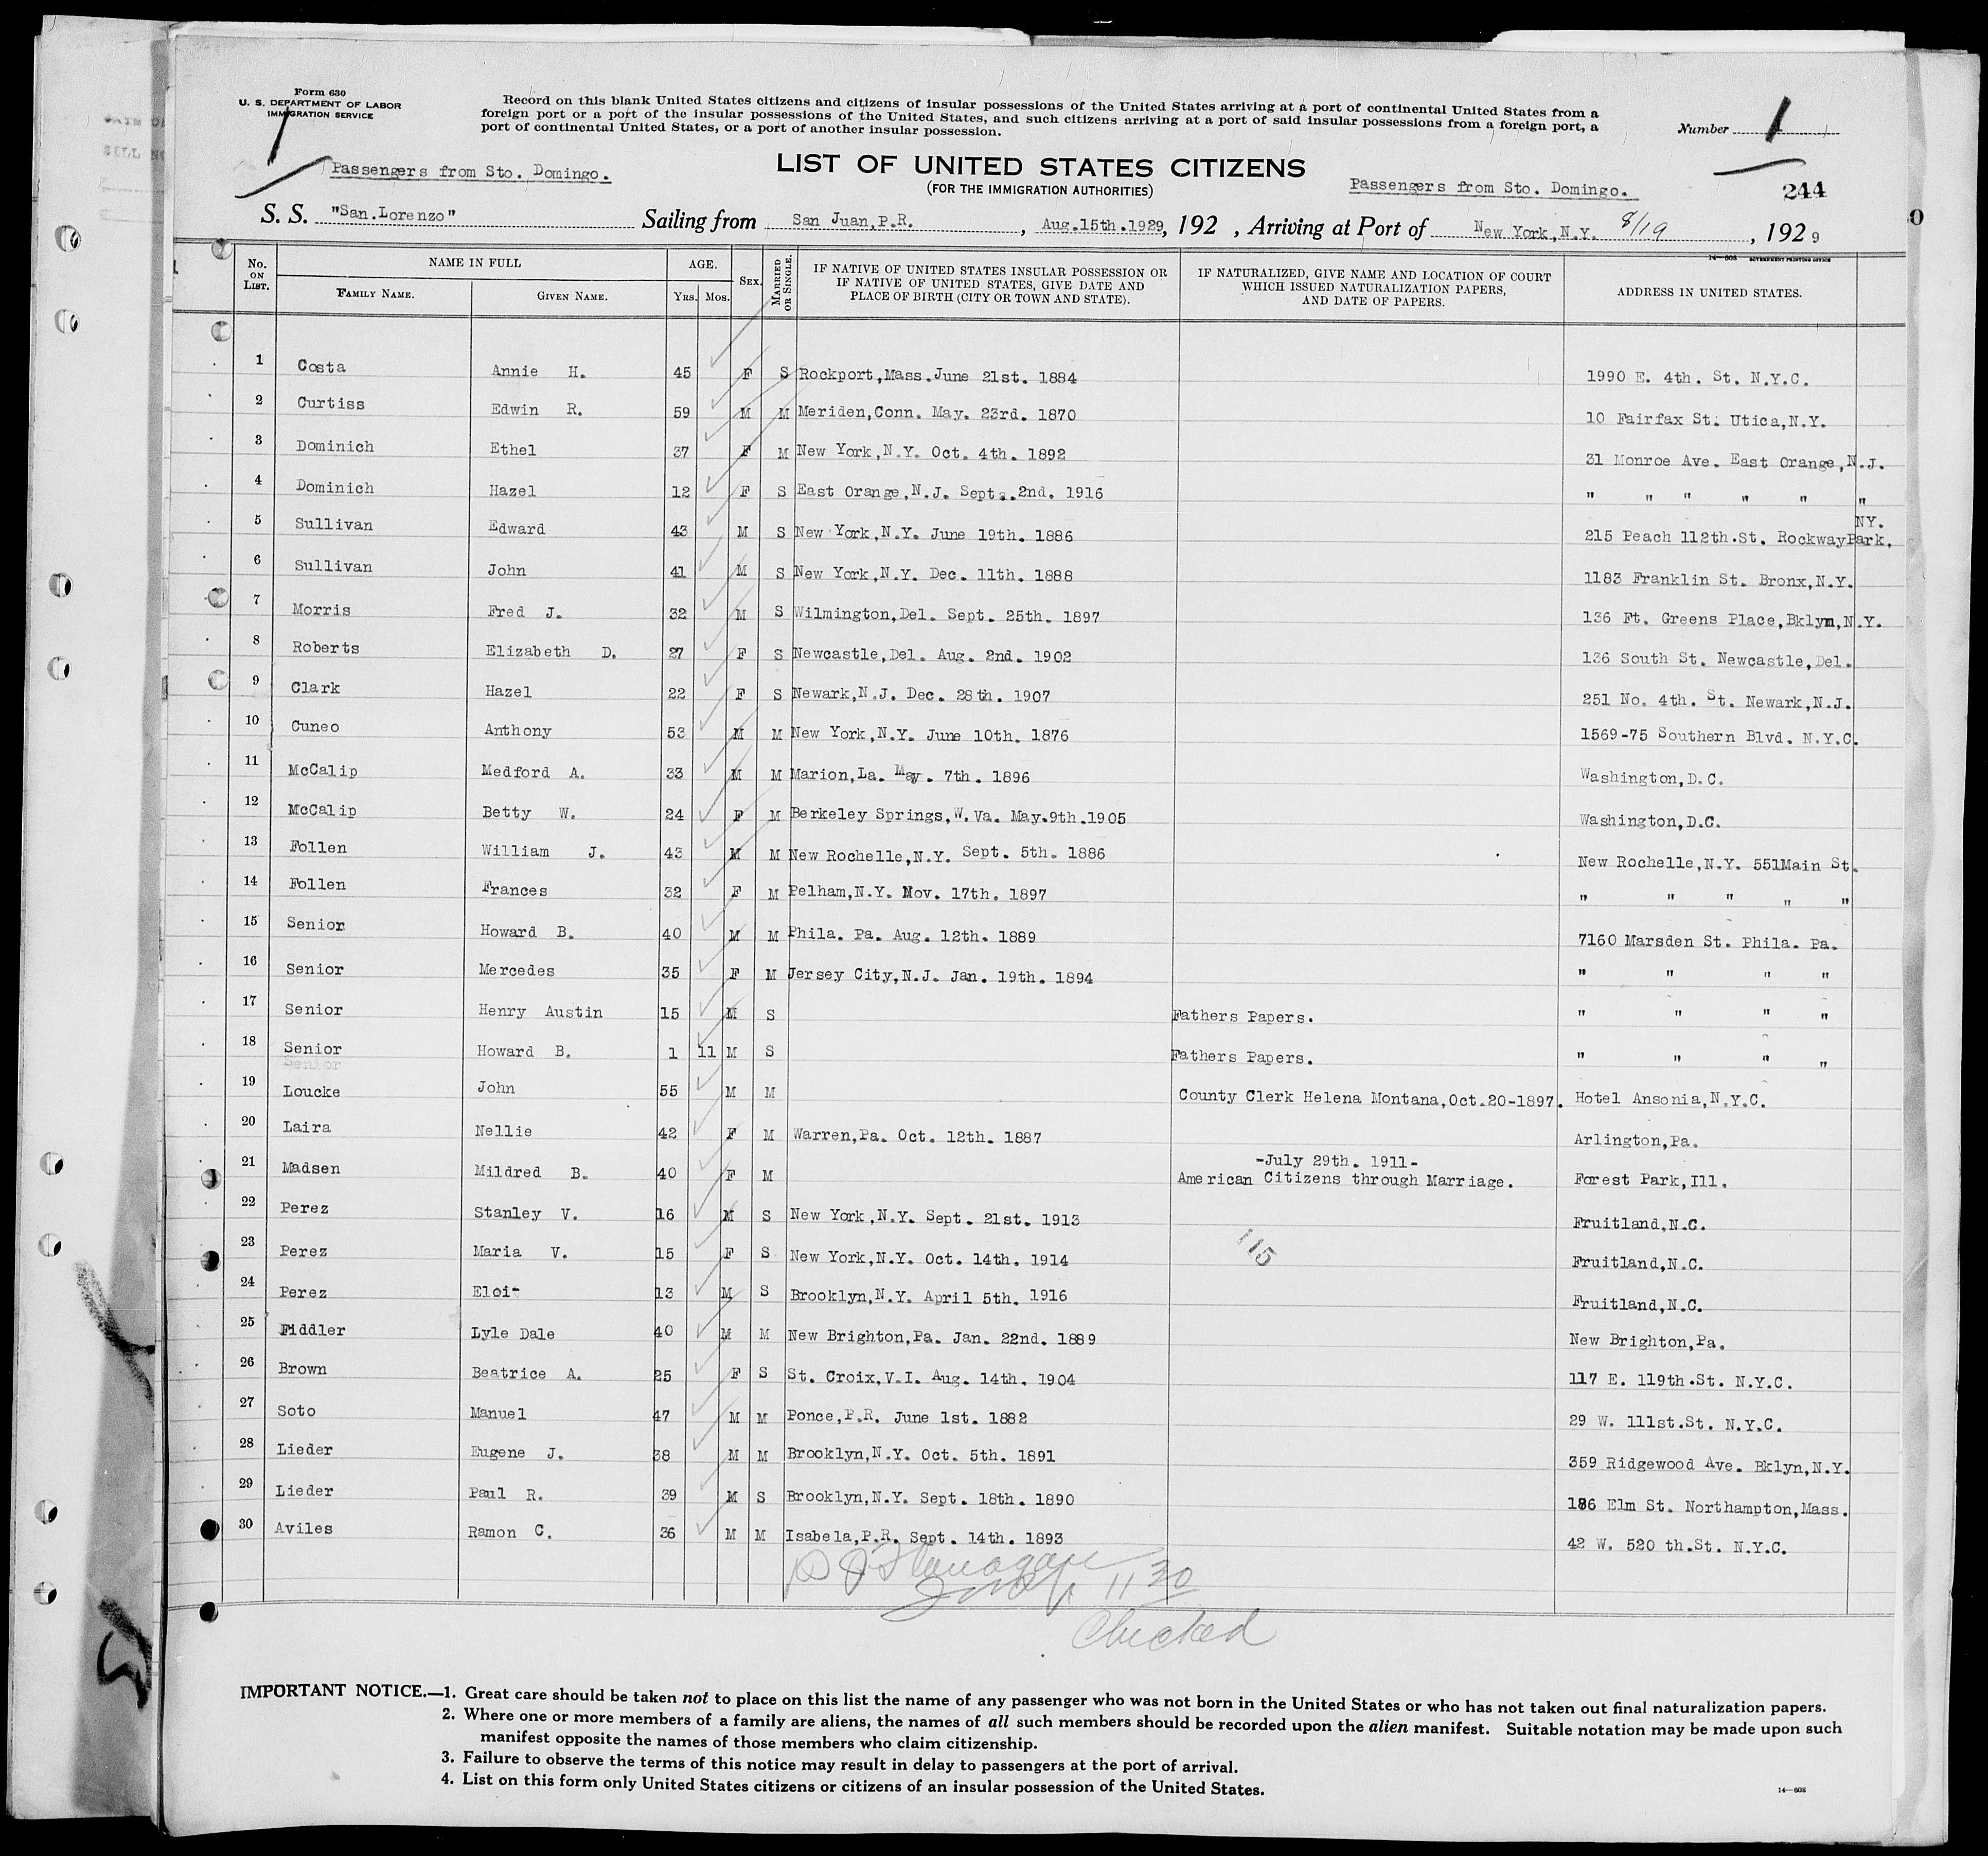 Form 630
U. S. DEPARTMENT OF LABOR
IMMIGRATION SERVICE
Record on this blank United States citizens and citizens of insular possessions of the United States arriving at a port of continental United States from a
foreign port or a port of the insular possessions of the United States, and such citizens arriving at a port of said insular possessions from a foreign port, a
port of continental United States, or a port of another insular possession.
Number 1
1
Passengers from Sto. Domingo.
LIST OF UNITED STATES CITIZENS
(FOR THE IMMIGRATION AUTHORITIES)
Passengers from Sto. Domingo.
244
S. S. "San.Lorenzo" Sailing from San Juan,P.R. , Aug.15th.1929, 192 , Arriving at Port of New York,N.Y. 8/19 , 1929
14—608 GOVERNMENT PRINTING OFFICE
No. ON LIST. NAME IN FULL FAMILY NAME. GIVEN NAME. AGE. YRS. MOS. SEX. MARRIED OR SINGLE. IF NATIVE OF UNITED STATES INSULAR POSSESSION OR IF NATIVE OF UNITED STATES, GIVE DATE AND PLACE OF BIRTH (CITY OR TOWN AND STATE). IF NATURALIZED, GIVE NAME AND LOCATION OF COURT WHICH ISSUED NATURALIZATION PAPERS, AND DATE OF PAPERS. ADDRESS IN UNITED STATES.
1 Costa Annie H. 45 F S Rockport,Mass.June 21st. 1884 1990 E. 4th. St. N.Y.C.
2 Curtiss Edwin R. 59 M M Meriden,Conn. May. 23rd. 1870 10 Fairfax St. Utica,N.Y.
3 Dominich Ethel 37 F M New York,N.Y. Oct. 4th. 1892 31 Monroe Ave. East Orange,N.J.
4 Dominich Hazel 12 F S East Orange,N.J. Sept..2nd. 1916 " " " " " "
5 Sullivan Edward 43 M S New York,N.Y. June 19th. 1886 215 Peach 112th.St. RockwayPark, NY.
6 Sullivan John 41 M S New York,N.Y. Dec. 11th. 1888 1183 Franklin St. Bronx,N.Y.
7 Morris Fred J. 32 M S Wilmington,Del. Sept. 25th. 1897 136 Ft. Greens Place,Bklyn,N.Y.
8 Roberts Elizabeth D. 27 F S Newcastle,Del. Aug. 2nd. 1902 136 South St. Newcastle,Del.
9 Clark Hazel 22 F S Newark,N.J. Dec. 28th. 1907 251 No. 4th. St. Newark,N.J.
10 Cuneo Anthony 53 M M New York,N.Y. June 10th. 1876 1569-75 Southern Blvd. N.Y.C.
11 McCalip Medford A. 33 M M Marion,La. May. 7th. 1896 Washington,D.C.
12 McCalip Betty W. 24 F M Berkeley Springs,W.Va. May.9th.1905 Washington,D.C.
13 Follen William J. 43 M M New Rochelle,N.Y. Sept. 5th. 1886 New Rochelle,N.Y. 551Main St.
14 Follen Frances 32 F M Pelham,N.Y. Nov. 17th. 1897 " " " " "
15 Senior Howard B. 40 M M Phila. Pa. Aug. 12th. 1889 7160 Marsden St. Phila. Pa.
16 Senior Mercedes 35 F M Jersey City,N.J. Jan. 19th. 1894 " " " "
17 Senior Henry Austin 15 M S Fathers Papers. " " " "
18 Senior Howard B. 1 11 M S Fathers Papers. " " " "
Senior
19 Loucke John 55 M M County Clerk Helena Montana,Oct.20-1897. Hotel Ansonia,N.Y.C.
20 Laira Nellie 42 F M Warren,Pa. Oct. 12th. 1887 Arlington,Pa.
-July 29th. 1911-
21 Madsen Mildred B. 40 F M American Citizens through Marriage. Forest Park,Ill.
22 Perez Stanley V. 16 M S New York,N.Y. Sept. 21st. 1913 Fruitland,N.C.
23 Perez Maria V. 15 F S New York,N.Y. Oct. 14th. 1914 115 Fruitland,N.C.
24 Perez Eloi 13 M S Brooklyn,N.Y. April 5th. 1916 Fruitland,N.C.
25 Fiddler Lyle Dale 40 M M New Brighton,Pa. Jan. 22nd. 1889 New Brighton,Pa.
26 Brown Beatrice A. 25 F S St. Croix,V.I. Aug. 14th. 1904 117 E. 119th.St. N.Y.C.
27 Soto Manuel 47 M M Ponce,P.R. June 1st. 1882 29 W. 111st.St. N.Y.C.
28 Lieder Eugene J. 38 M M Brooklyn,N.Y. Oct. 5th. 1891 359 Ridgewood Ave. Bklyn,N.Y.
29 Lieder Paul R. 39 M S Brooklyn,N.Y. Sept. 18th. 1890 186 Elm St. Northampton,Mass.
30 Aviles Ramon C. 36 M M Isabela,P.R. Sept. 14th. 1893 42 W. 520 th.St. N.Y.C.
11 30
Checked
IMPORTANT NOTICE.—1. Great care should be taken not to place on this list the name of any passenger who was not born in the United States or who has not taken out final naturalization papers.
2. Where one or more members of a family are aliens, the names of all such members should be recorded upon the alien manifest. Suitable notation may be made upon such
manifest opposite the names of those members who claim citizenship.
3. Failure to observe the terms of this notice may result in delay to passengers at the port of arrival.
4. List on this form only United States citizens or citizens of an insular possession of the United States.
14—608